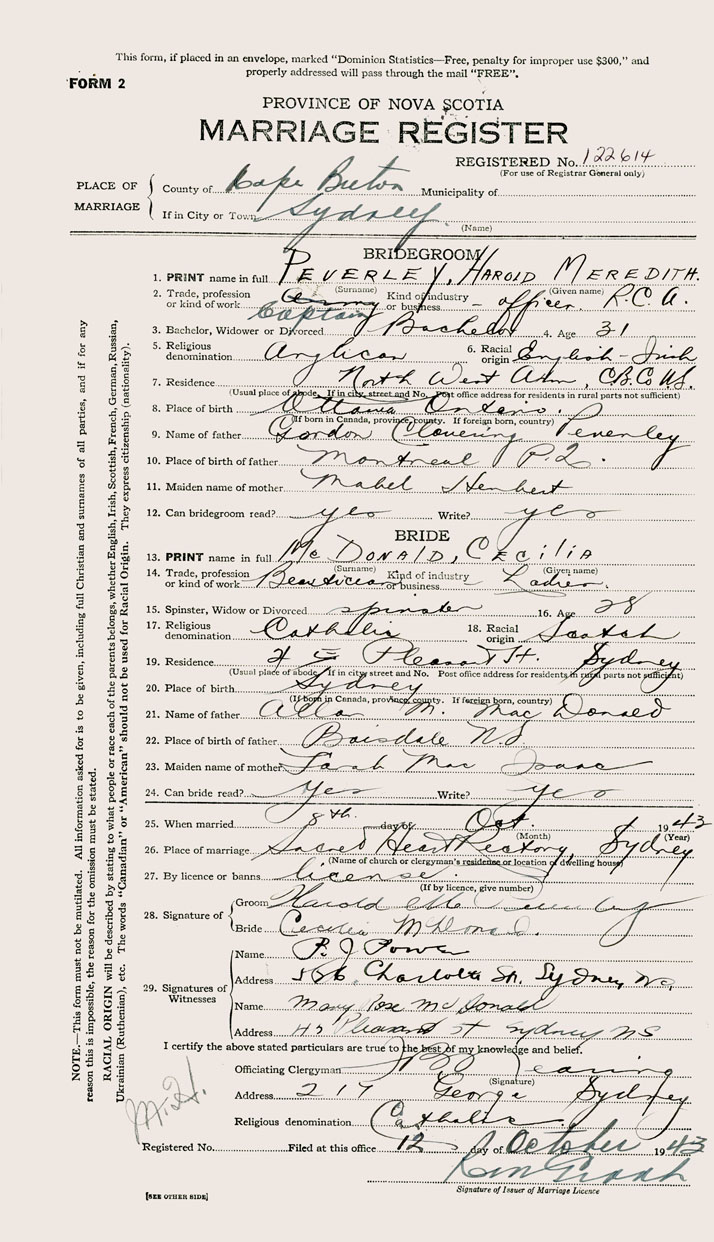 This form, if placed in an envelope, marked "Dominion Statistics—Free, penalty for improper use $300," and
properly addressed will pass through the mail "FREE".
FORM 2
PROVINCE OF NOVA SCOTIA
MARRIAGE REGISTER
REGISTERED No. 122614
(For use of Registrar General only)
PLACE OF MARRIAGE
County of Cape Breton Municipality of
If in City or Town Sydney
(Name)
BRIDEGROOM
1. PRINT name in full PEVERLEY, HAROLD MEREDITH.
(Surname) (Given name)
2. Trade, profession or kind of work Army Captain Kind of industry or business - officer. R.C.A.
3. Bachelor, Widower or Divorced Bachelor 4. Age 31
5. Religious denomination Anglican 6. Racial origin English-Irish
7. Residence North West Arm, C.B.Co N.S.
(Usual place of abode. If in city, street and No. Post office address for residents in rural parts not sufficient)
8. Place of birth Ottawa Ontario.
(If born in Canada, province, county. If foreign born, country)
9. Name of father Gordon Clovering Peverley
10. Place of birth of father Montreal P.Q.
11. Maiden name of mother Mabel Herbert
12. Can bridegroom read? yes Write? yes
BRIDE
13. PRINT name in full McDONALD, CECILIA
(Surname) (Given name)
14. Trade, profession or kind of work Beautician Kind of industry or business Ladies.
15. Spinster, Widow or Divorced spinster 16. Age 28
17. Religious denomination Catholic 18. Racial origin Scotch
19. Residence Pleasant St. Sydney
(Usual place of abode. If in city, street and No. Post office address for residents in rural parts not sufficient)
20. Place of birth Sydney
(If born in Canada, province, county. If foreign born, country)
21. Name of father Allan M. MacDonald
22. Place of birth of father Boisdale N.S
23. Maiden name of mother Sarah MacIsaac
24. Can bride read? yes Write? yes
25. When married 8th day of Oct. 1943
(Month) (Year)
26. Place of marriage Sacred Heart Rectory, Sydney
(Name of church or clergyman's residence or location of dwelling house)
27. By licence or banns license.
(If by licence, give number)
28. Signature of
Groom Harold M. Peverley
Bride Cecilia McDonald.
29. Signatures of Witnesses
Name P. J. Power
Address Charlotte St. Sydney N.S.
Name Mary Rose McDonald
Address 45 Pleasant St Sydney NS
I certify the above stated particulars are true to the best of my knowledge and belief.
Officiating Clergyman
(Signature)
Address 217 George Sydney
Religious denomination Catholic
Registered No. Filed at this office 12 day of October 1943
Signature of Issuer of Marriage Licence
[SEE OTHER SIDE]
NOTE.—This form must not be mutilated. All information asked for is to be given, including full Christian and surnames of all parties, and if for any
reason this is impossible, the reason for the omission must be stated.
RACIAL ORIGIN will be described by stating to what people or race each of the parents belongs, whether English, Irish, Scottish, French, German, Russian,
Ukrainian (Ruthenian), etc. The words "Canadian" or "American" should not be used for Racial Origin. They express citizenship (nationality).